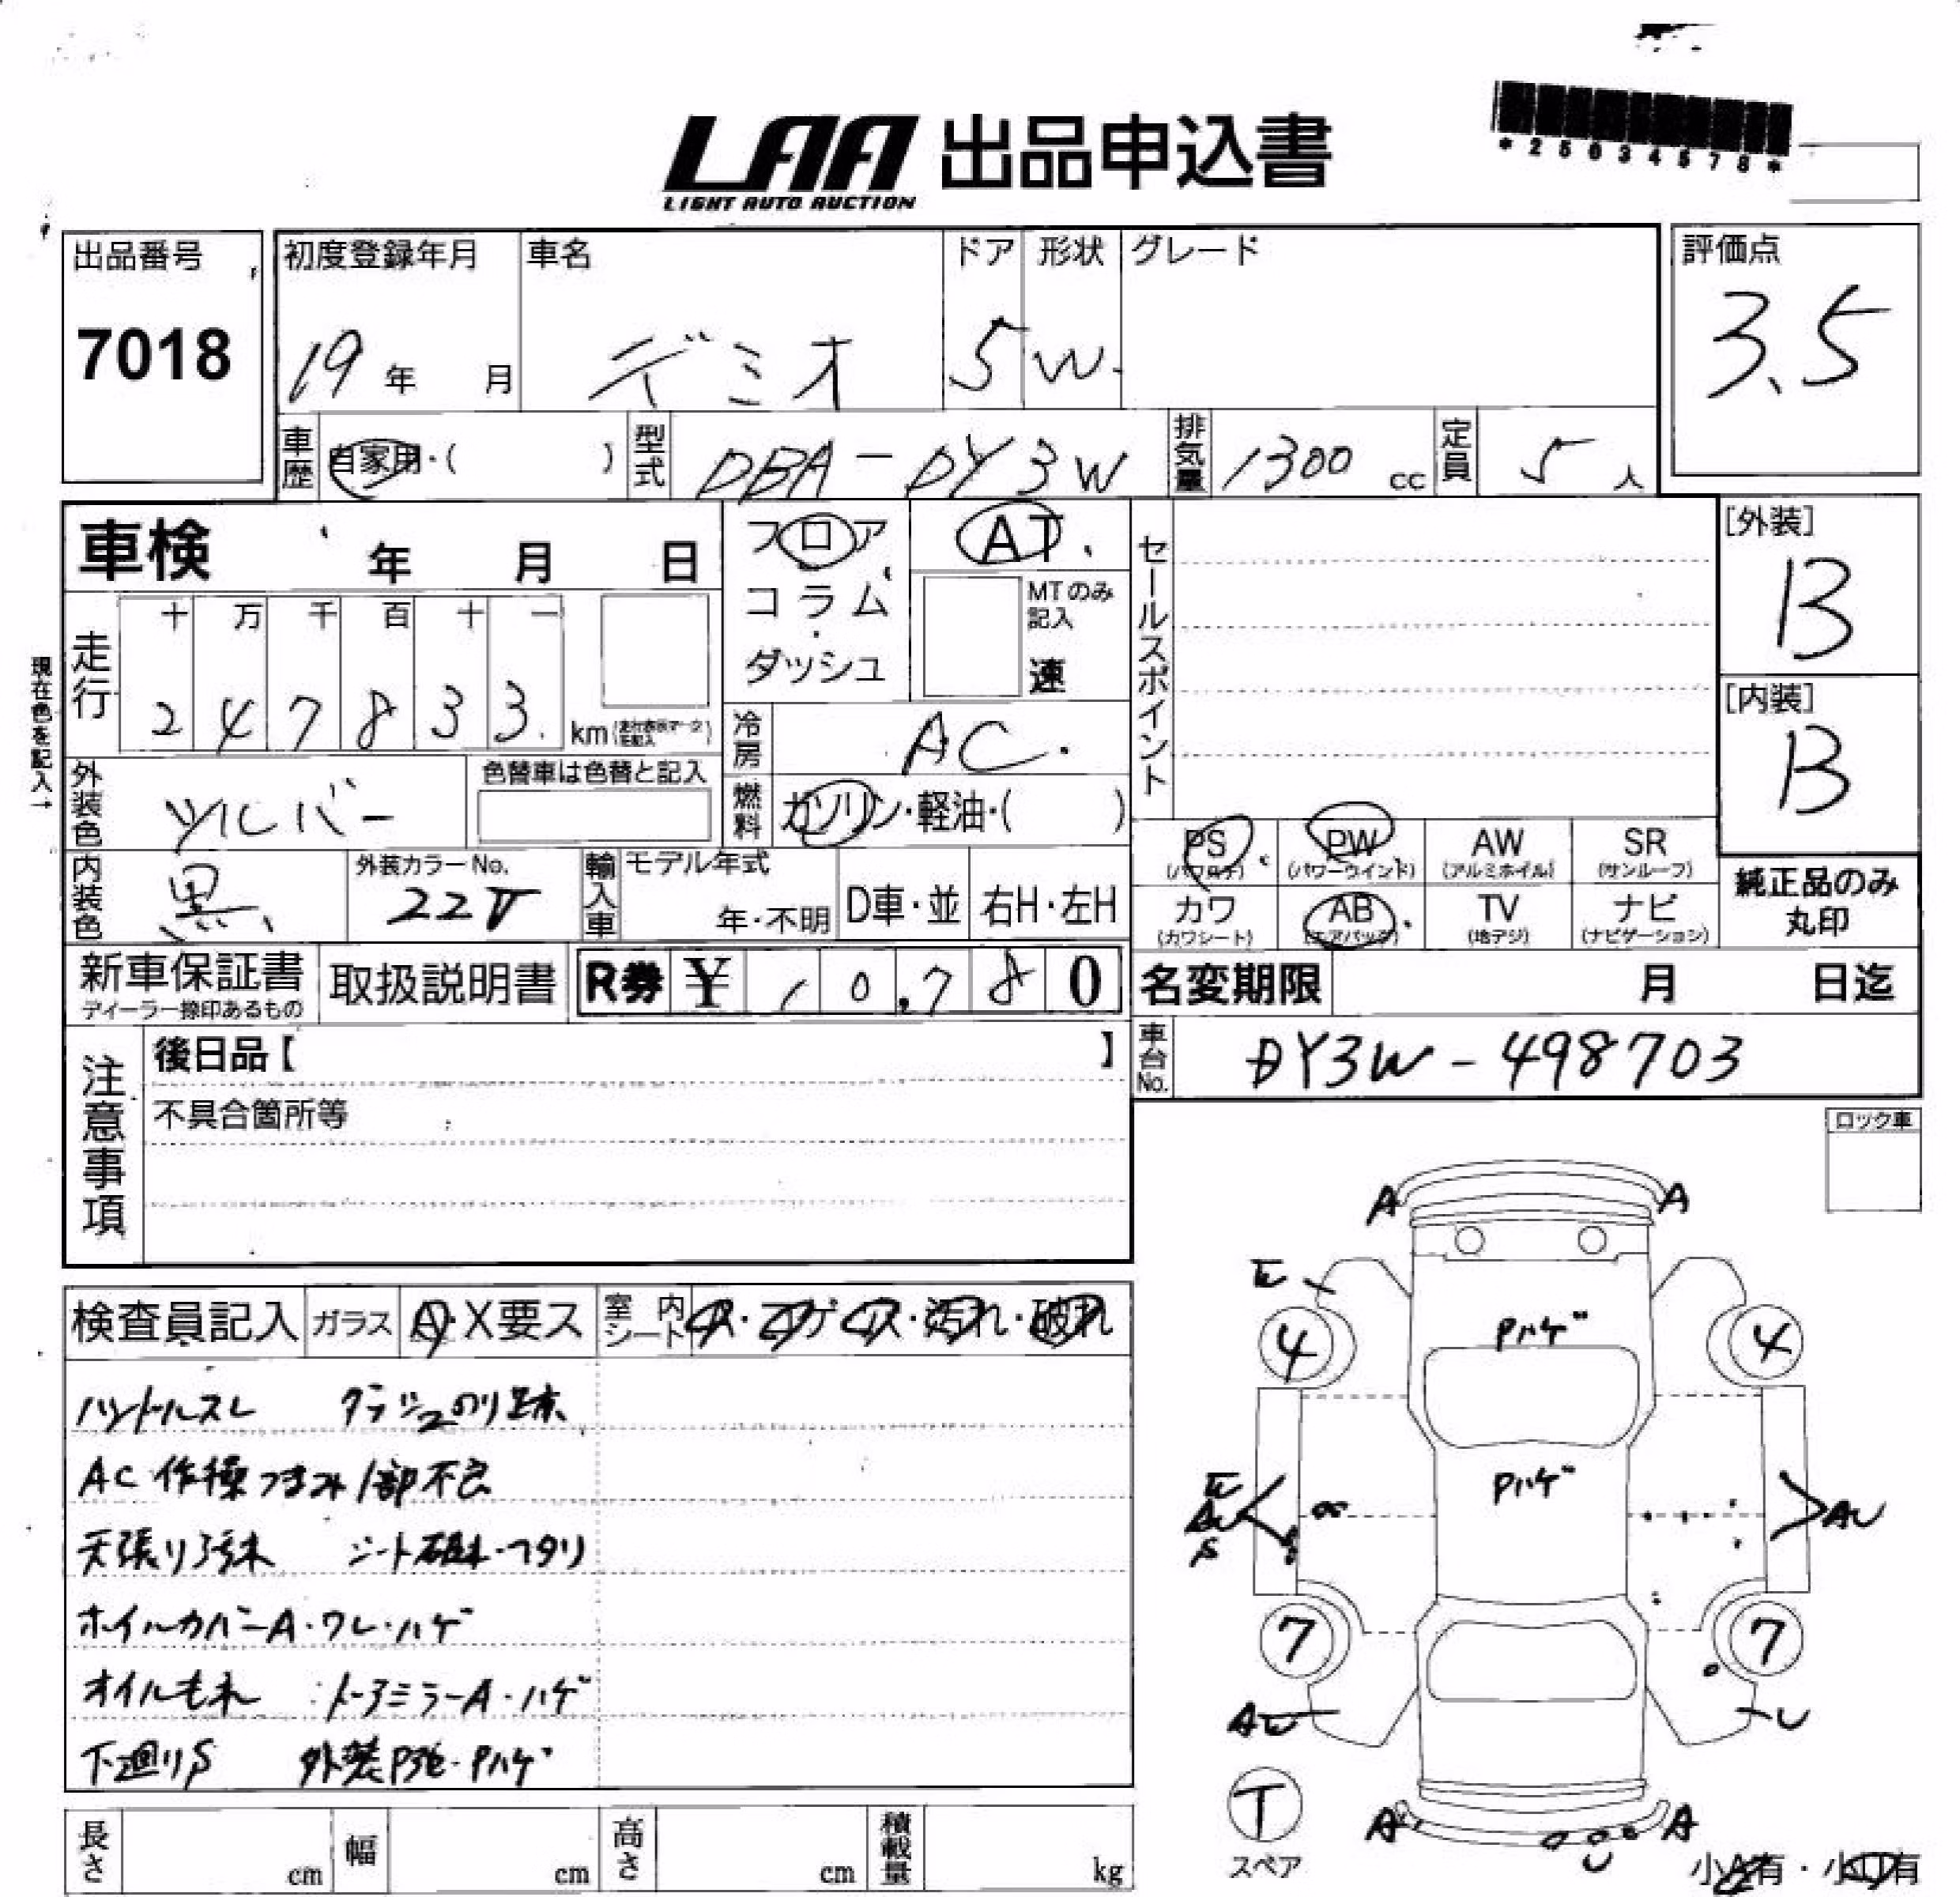 LAA 出品申込書
LIGHT AUTO AUCTION
*25034578*
出品番号 初度登録年月 車名 ドア 形状 グレード 評価点
7018 19年 月 デミオ 5 W. 3.5
車歴 自家用・( ) 型式 DBA-DY3W 排気量 1300 cc 定員 5 人
車検 年 月 日 フロア AT. セールスポイント [外装]
B
コラム MTのみ記入
十 万 千 百 十 一
走行 ダッシュ 速 [内装]
2 4 7 8 3 3 km
現在色を記入→
冷房 AC. B
外装色 シルバー 色替車は色替と記入 燃料 ガソリン・軽油・( )
PS PW AW SR
(パワステ) (パワーウインド) (アルミホイル) (サンルーフ)
内装色 黒 外装カラーNo. 22V 輸入車 モデル年式 年・不明 D車・並 右H・左H
カワ AB TV ナビ 純正品のみ丸印
(カワシート) (エアバッグ) (地デジ) (ナビゲーション)
新車保証書 取扱説明書 R券 ¥ 10,780 名変期限 月 日迄
ディーラー捺印あるもの
注意事項 後日品【 】 車台No. DY3W-498703
不具合箇所等
ロック車
A A
検査員記入 ガラス A・X要ス 室内シート ス・コゲ・穴・汚れ・破れ
4 Pハゲ 4
ハンドルスレ ダッシュのり跡
AC作操つまみ1部不良
Pハゲ
天張り汚れ シート破れ・ヘタリ
AU S AU
ホイルカバーA・ワレ・ハゲ
7 7
オイルもれ ドアミラーA・ハゲ
AU U
下廻りS 外装P跡・Pハゲ
T
スペア
A A
U
長さ cm 幅 cm 高さ cm 積載量 kg
小A有・小U有